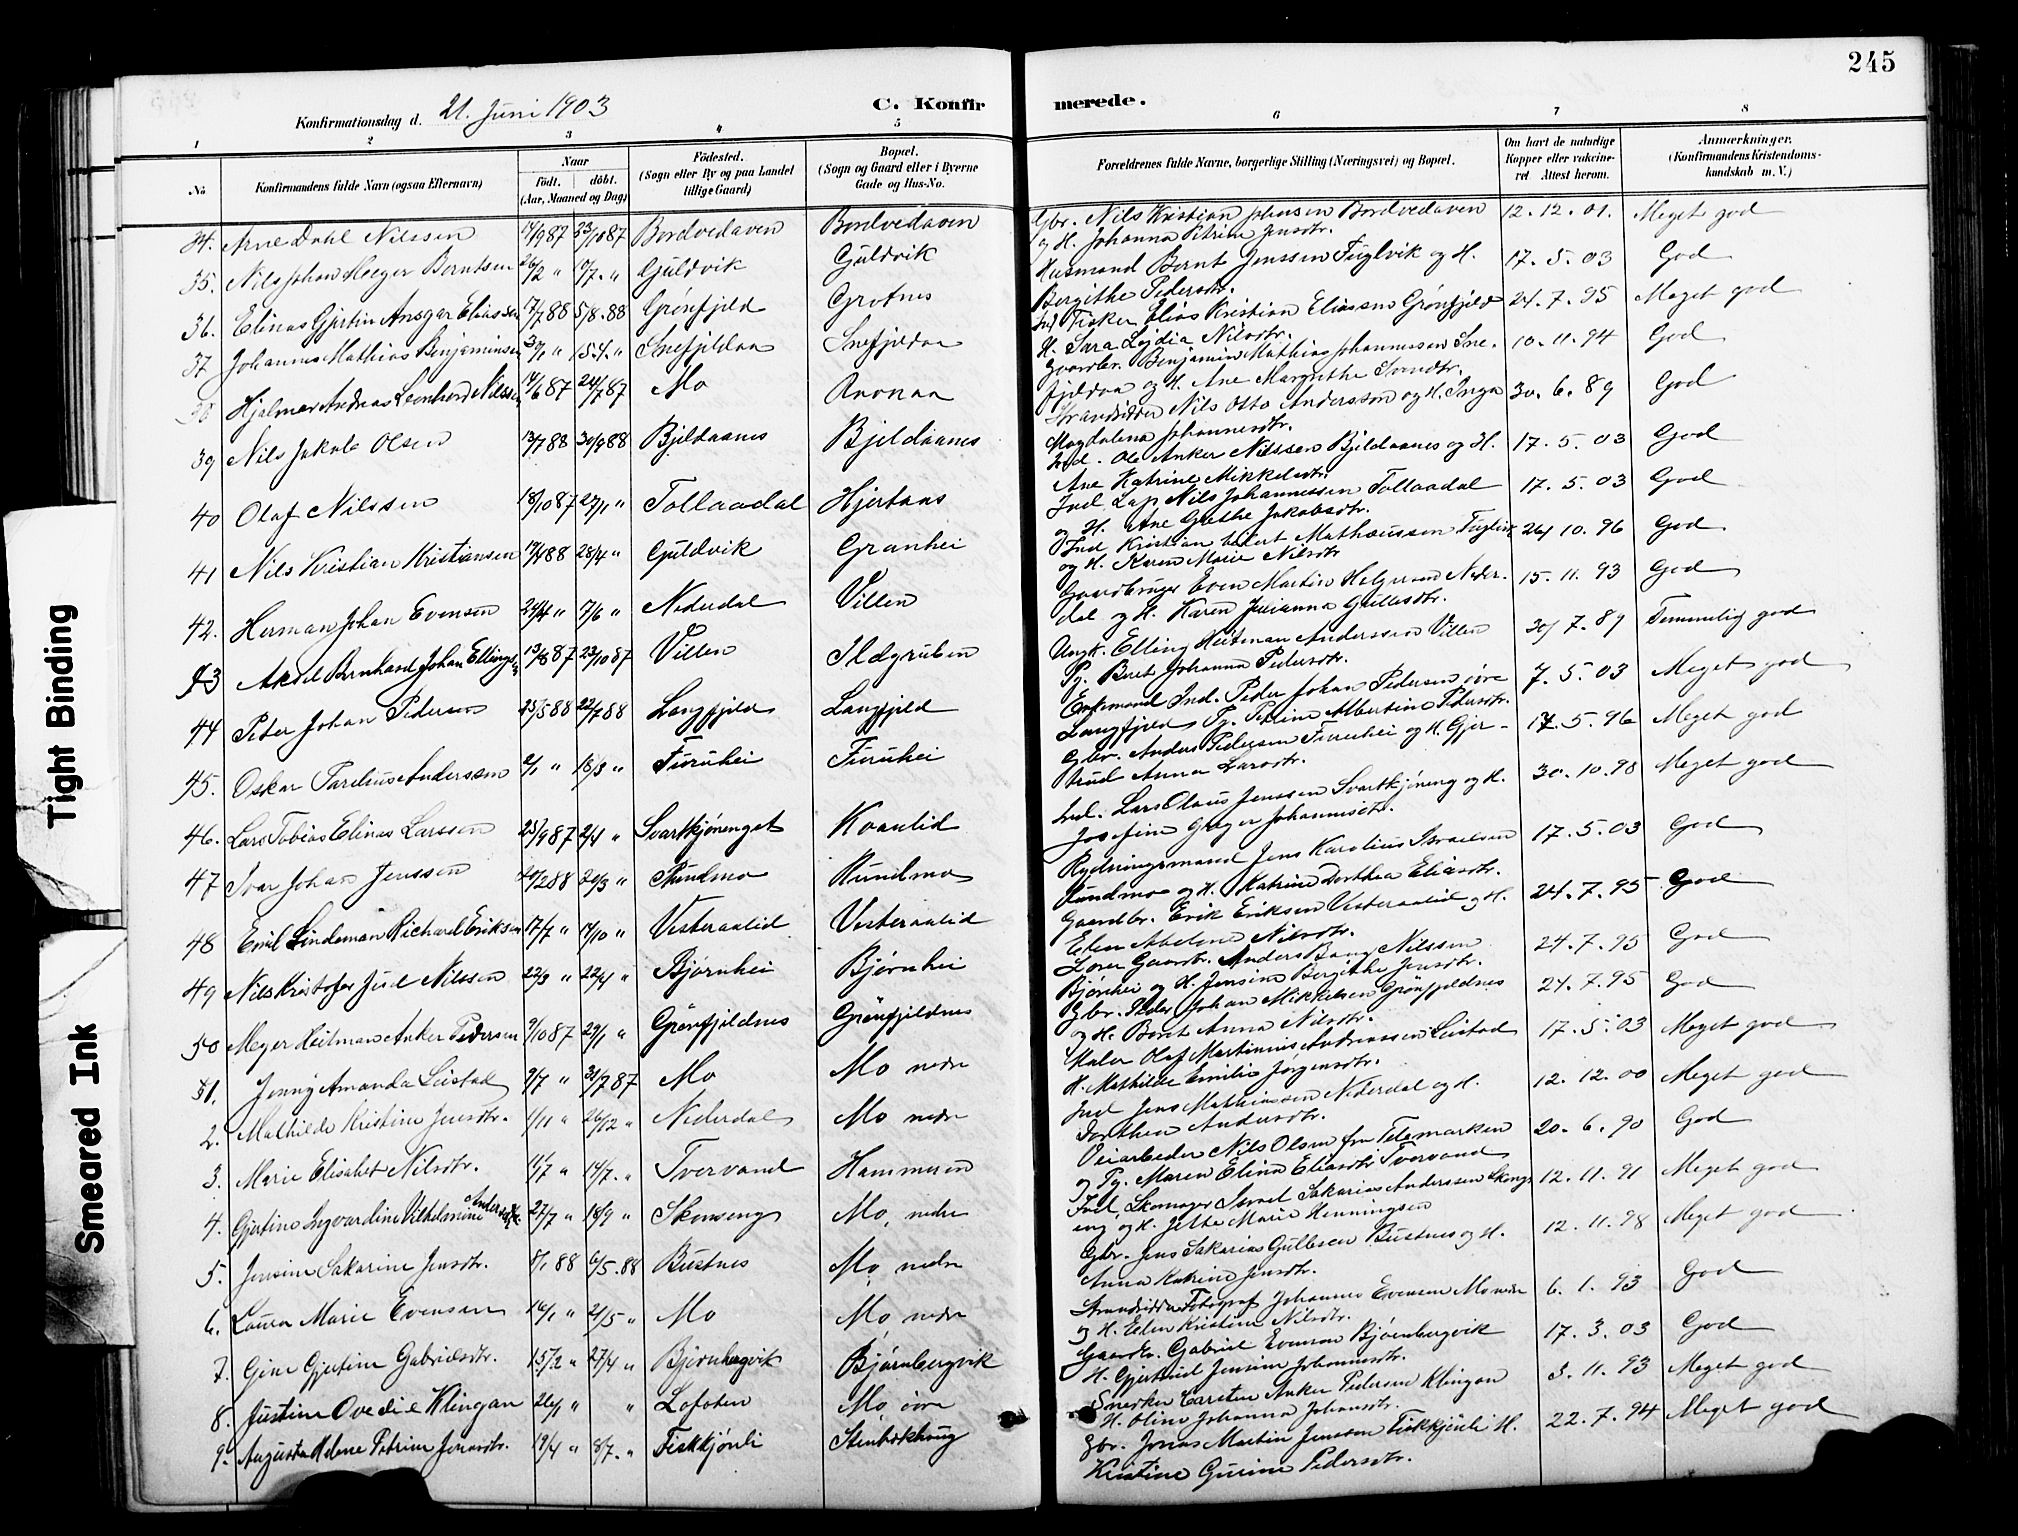 245
Konfirmationsdag d. 21. Juni 1903
C. Konfirmerede.
1 2 3 4 5 6 7 8
No
Konfirmandens fulde Navn (ogsaa Efternavn)
Naar
Født. døbt.
(Aar, Maaned og Dag)
Fødested.
(Sogn eller By og paa Landet
tillige Gaard)
Bopæl.
(Sogn og Gaard eller i Byerne
Gade og Hus-No.
Forældrenes fulde Navne, borgerlige Stilling (Næringsvei) og Bopæl.
Om havt de naturlige
Kopper eller vaccine-
ret Attest herom.
Anmærkninger.
(Konfirmandens Kristendoms-
kundskab m. V.)
34. Arne Dahl Nilssen 14/9 87 23/10 87 Bordvedaven Bordvedaven Gbr. Nils Kristian Johnsen Bordvedaven 12.12.01. Meget god
og H. Johanna Petrine Jensdtr.
35. Nils Johan Meyer Berntsen 26/2 " 10/7. " Guldvik Guldvik Husmand Bernt Jenssen Fuglvik og H. 17.5.03 God
Bergithe Pedersdtr.
36. Elinas Gjertin Ansgar Eliassen 17/7 88 5/8.88 Grønfjeld Grotnes Ind Fisker Elias Kristian Eliassen Grønfjeld 24.7.95 Meget god
H. Sara Lydia Nilsdtr.
37 Johannes Mathias Benjaminsen " 15.4. " Snefjeldaa Snefjeldaa Gaardbr. Benjamin Mathias Johannessen Sne- 10.11.94 God
fjeldaa og H. Ane Margrethe
38 Hjalmar Andreas Leonhard Nilssen 14/6 87 24/7 87 Mo Strandsidder Nils Otto Anderssen og H. Inga 30.6.89 God
Magdalena Johannesdtr.
39 Nils Jakob Olsen 13/7 88 30/9 88 Bjeldaanes Bjeldaanes Ind. Ole Anker Nilssen Bjeldaanes og H. 17.5.03 God
Ane Katrine Mikkelsdtr.
40 Olaf Nilssen 18/10 87 27/1 " Tollaadal Hjertaas Ind Lap Nils Johannessen Tollaadal 17.5.03 God
og H. Ane Grethe Jakobsdtr.
41 Nils Kristian Kristiansen 19/4 88 28/4 " Guldvik Granhei Ind Kristian Mathæussen 24/10.96 God
og H. Karen Marie Nilsdtr
42. Herman Johan Evensen 24/4 " 7/6 " Nederdal Villen Gaardbruger Even Martin Neder- 15.11.93 God
dal og H. Karen Julianna Gullesdtr.
43 Aksel Bernhard Johan Ellingsen 13/8 87 23/10 87 Villen Ildgruben Ungk. Elling Heitman Anderssen Villen 30/7.89 Temmelig god
Pg. Beret Johanna Pedersdtr.
44 Peter Johan Pedersen 23/5 88 22/7 88 Langfjeld Langfjeld Enkemand Ind. Peder Johan Pedersen øvre 7.5.03 Meget god
Langfjeld Pg. Petrine Albertine Pedersdtr.
45. Oskar Parelius Anderssen 2/1 " 18/3 " Furuhei Furuhei Gbr. Anders Pedersen Furuhei og H. Gjer- 17.5.96 Meget god
trud Anna Larsdtr.
46. Lars Tobias Elinas Larssen 23/9 87 2/4 " Svartkjønenget Kvanlid Ind. Lars Olaus Jenssen Svartkjøneng og H. 30.10.98 Meget god
Josefine Johannesdtr.
47 Ivar Johan Jenssen 2 88 20/3 " Rundmo Rundmo Rydningsmand Jens Karolius Israelsen 17.5.03 God
Rundmo og H. Katrine Dorthea Eliasdtr.
48 Emil Lindeman Richard Eriksen 17/7 " 14/10 " Vesteraalid Vesteraalid Gaardbr. Erik Eriksen Vesteraalid og H. 24.7.95 God
Elen Abelone Nilsdtr.
49 Nils Kristofer Juel Nilssen 22/3 " 22/4 " Bjørnhei Bjørnhei Gaardbr. Anders Bang Nilssen 24.7.95 God
Bjørnhei og H. Jensine Bergithe Jensdtr.
50 Meyer Heitman Anker Pedersen 9/10 87 29/1 " Grønfjeldnes Grønfjeldnes Gbr. Peder Johan Mikkelsen Grønfjeldnes 24.7.95 God
og H. Beret Anna Nilsdtr.
51. Jenny Amanda Leistad 9/7 " 31/7 87 Mo Mo nedre Maler Olaf Martinius Andreassen Leistad 17.5.03 Meget god
H. Mathilde Emilie Jørgensdtr.
2. Mathilde Kristine Jensdtr. 1/11 " 26/12 " Nederdal Mo nedre Ind Jens Mathiassen Nederdal og H. 12.12.00 Meget god
Dorthea Andersdtr.
3. Marie Elisabet Nilsdtr. 11/7 " 14/7. " Tvervand Hammeren Veiarbeder Nils Olsen fra Telemarken 20.6.90 God
og Pg. Maren Elina Eliasdtr Tvervand
4. Gjertine Ingvardine Vilhelmine Andersen 27/7 " 18/9 " Skonseng Mo, nedre Ind, Skomager Israel Sakarias Anderssen Skons- 12.11.91 Meget god
eng og H. Jette Marie Henningsen
5. Jensine Sakarine Jensdtr. 8/1 88 6/5.88 Bustnes Mo, nedre Gbr. Jens Sakarias Gullesen Bustnes og H. 12.11.98 Meget god
Anna Katrine Jensdtr.
6. Laura Marie Evensen 16/1 " 21/5 " Mo Mo nedre Strandsidder Fotograf Johannes Evensen Mo nedre 6.1.93 God
og H. Elen Kristine Nilsdtr.
7. Gine Gjertine Gabrielsdtr. 15/2 " 27/4 " Bjørnbergvik Bjørnbergvik Gaardbr. Gabriel Evensen Bjørnbergvik 17.3.03 God
H. Gjertrud Jensine Johannesdtr.
8. Justine Ovedie Klingan 26/1 " " Lofoten Mo øvre Snedker Carsten Anker Pedersen Klingan 3.11.93 Meget god
H. Oline Johanna Johansdtr.
9. Augusta Helene Petrine Jonasdtr. 19/4 " 8/7. " Fiskkjønli Stenbækhaug Gbr. Jonas Martin Jenssen Fiskkjønli H. 22.7.94 Meget god
Kristine Gurine Pedersdtr.
Tight Binding
Smeared Ink